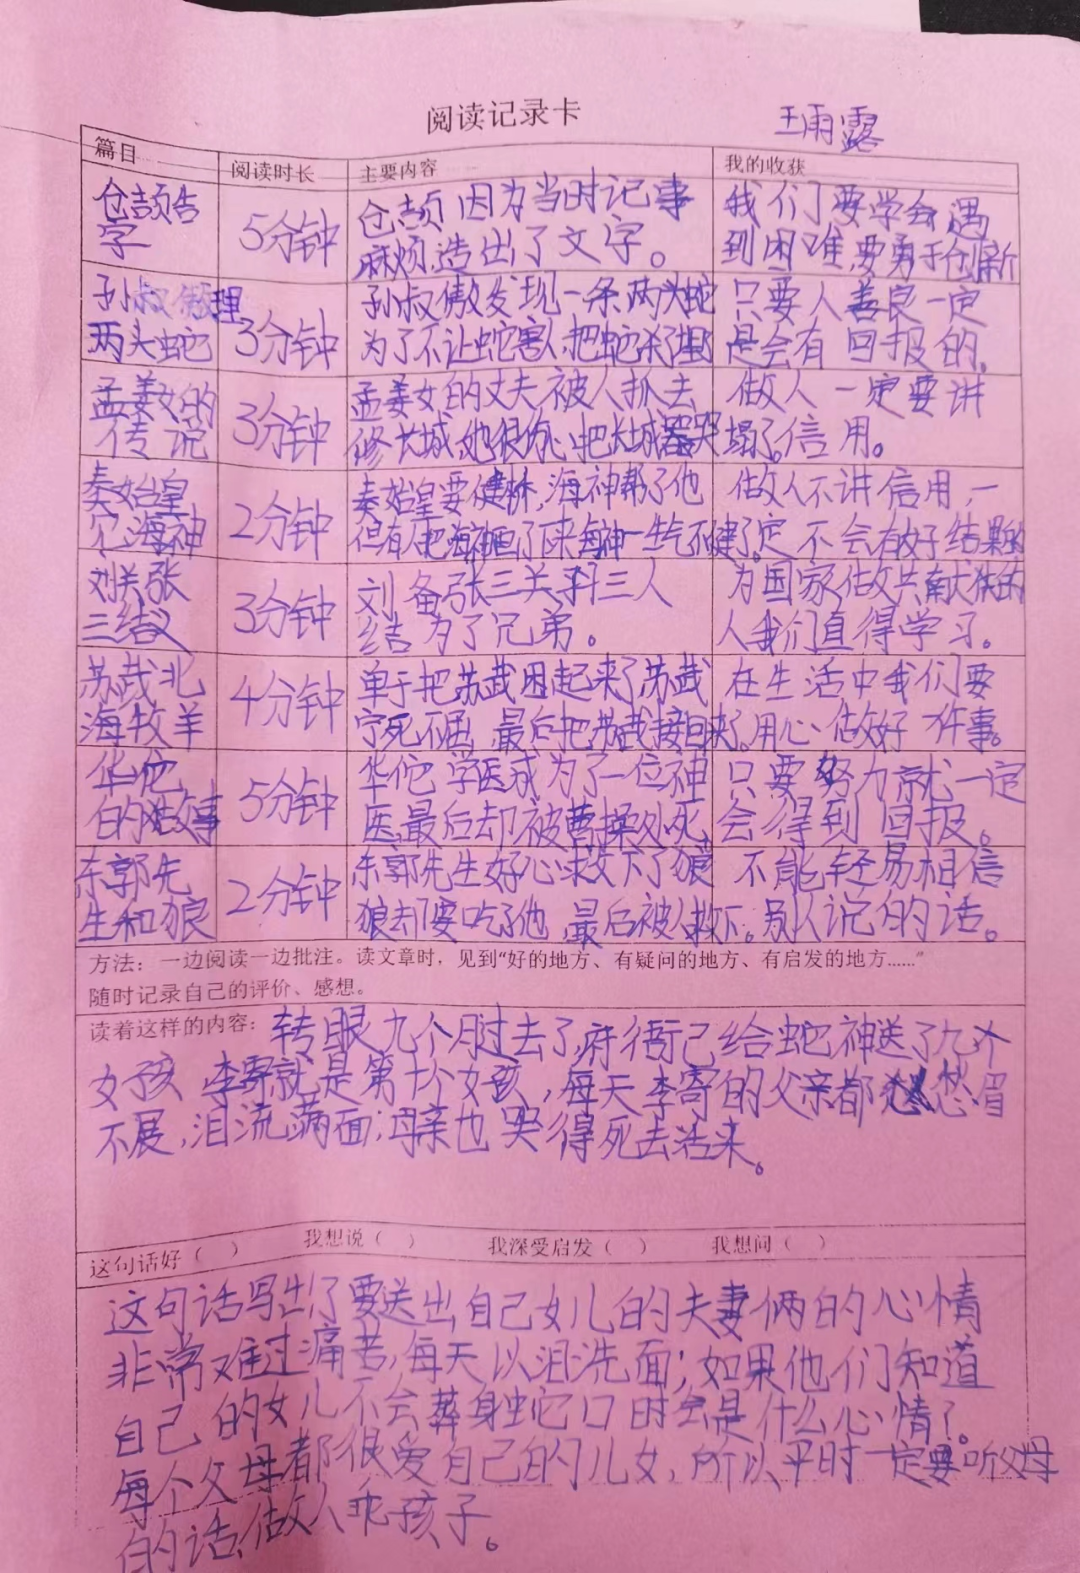 阅读记录卡
王雨露
篇目 阅读时长 主要内容 我的收获
仓颉告 5分钟 仓颉因为当时记事 我们要学会遇
字 麻烦,造出了文字。 到困难要勇于创新
孙叔傲理 3分钟 孙叔傲发现一条两头蛇 只要人善良一定
两头蛇 为了不让蛇害人把蛇杀了埋 是会有回报的。
孟姜女的 3分钟 孟姜女的丈夫被人抓去 做人一定要讲
传说 修长城,她很伤心把长城哭塌了。 信用。
秦始皇 2分钟 秦始皇要健桥,海神帮了他 做人不讲信用,一
海神 但有人把海神画了下来海神一生气不健了。 定不会有好结果的
刘关张 3分钟 刘备张三关羽三人 为国家做共献的
三结义 结为了兄弟。 人我们直得学习。
苏武北 4分钟 单于把苏武困起来了苏武 在生活中我们要
海牧羊 宁死不屈,最后把苏武接回来了。 用心做好件事。
华佗 5分钟 华佗学医成为了一位神 只要努力就一定
的故事 医,最后却被曹操处死 会得到回报。
东郭先 2分钟 东郭先生好心救下了狼 不能轻易相信
生和狼 狼去要吃了他,最后被人救下。 别人说的话。
方法:一边阅读一边批注。读文章时,见到“好的地方、有疑问的地方、有启发的地方……”
随时记录自己的评价、感想。
读着这样的内容:转眼九个月过去了,府衙已给蛇神送了九个
女孩,李寄就是第十个女孩,每天李寄的父亲都愁眉
不展,泪流满面;母亲也哭得死去活来。
这句话好( ) 我想说( ) 我深受启发( ) 我想问( )
这句话写出了要送出自己女儿的夫妻俩的心情
非常难过痛苦,每天以泪洗面;如果他们知道
自己的女儿不会葬身蛇口时会是什么心情了。
每个父母都很爱自己的儿女,所以平时一定要听父母
的话,做人乖孩子。